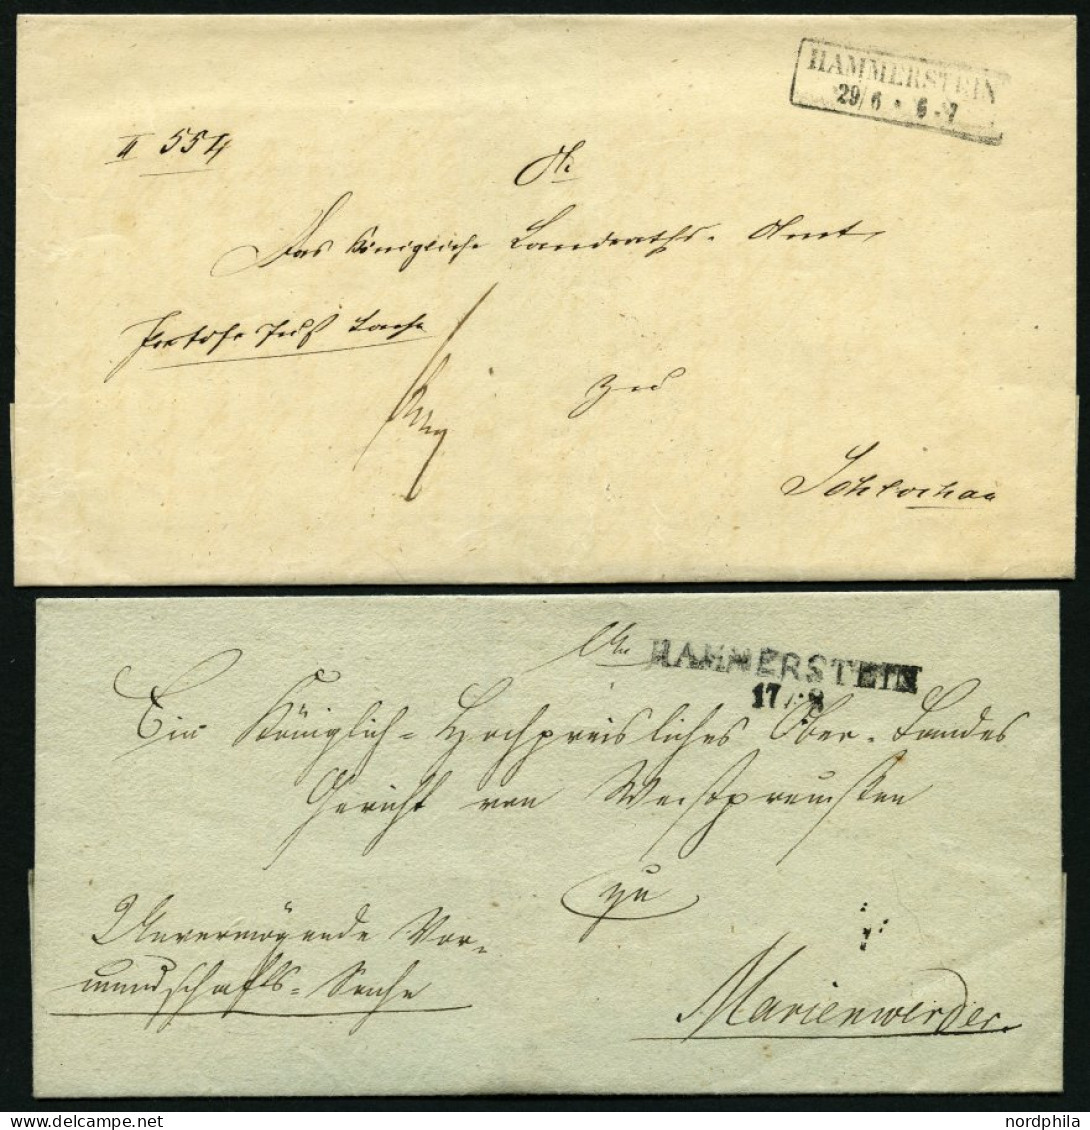 HAMMERSTEIN
29/6 * 6-7
II 554
An
Das Königliche Landraths-Amt
zu
Schlochau
An
HAMMERSTEIN
17/8
Ein Königlich-Hochpreisliches Ober-Landes
Gericht von Westpreussen
zu
Unvermögende Vor-
mundschafts-Sache
Marienwerder.
nordphila